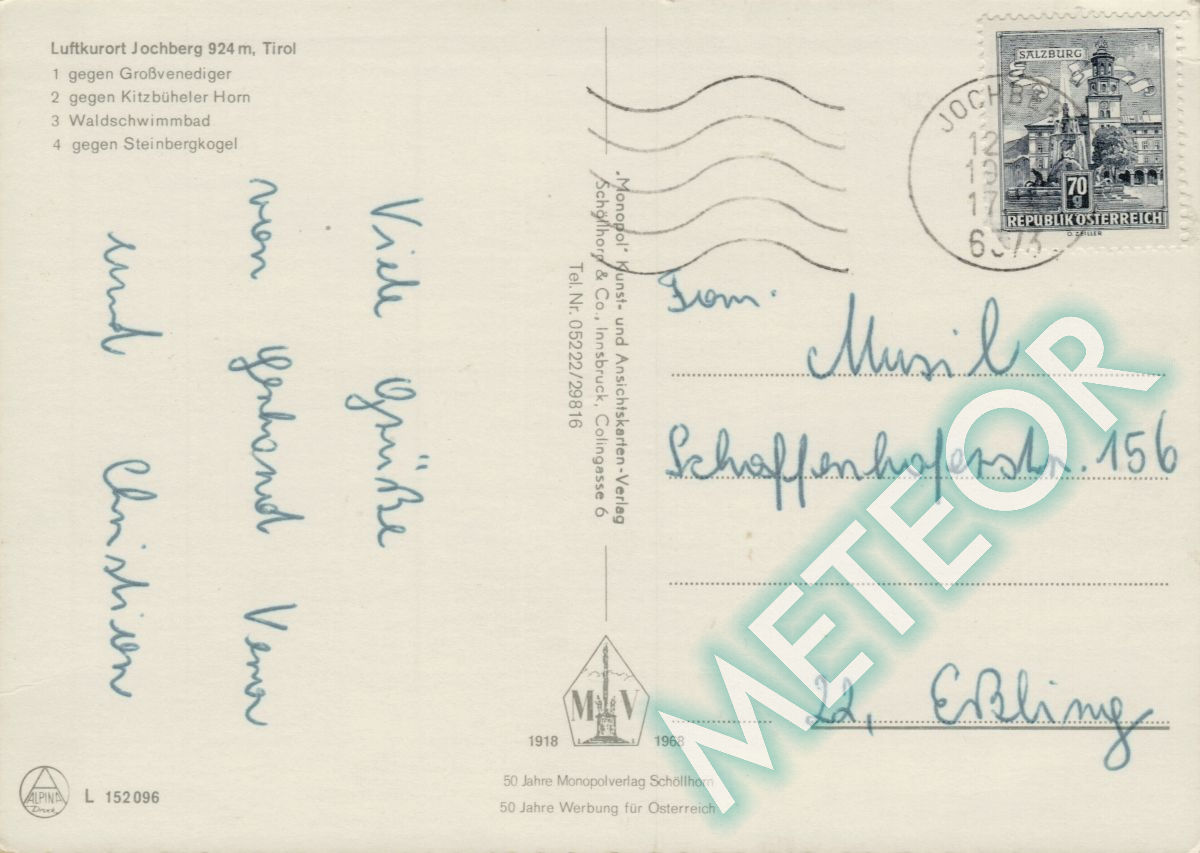 Luftkurort Jochberg 924 m, Tirol
1 gegen Großvenediger
2 gegen Kitzbüheler Horn
3 Waldschwimmbad
4 gegen Steinbergkogel
Viele Grüße
von Gerhard Vera
und Christian
"Monopol" Kunst- und Ansichtskarten-Verlag
Schöllhorn & Co., Innsbruck, Colingasse 6
Tel. Nr. 05222/29816
SALZBURG
70
g
REPUBLIK ÖSTERREICH
O. ZEILLER
JOCHBE
12
19
17
6373
Fam.
Musil
Schaffenhoferstr. 156
22, Eßling
METEOR
M V
1918 1968
50 Jahre Monopolverlag Schöllhorn
50 Jahre Werbung für Österreich
ALPINA
Druck
L 152096